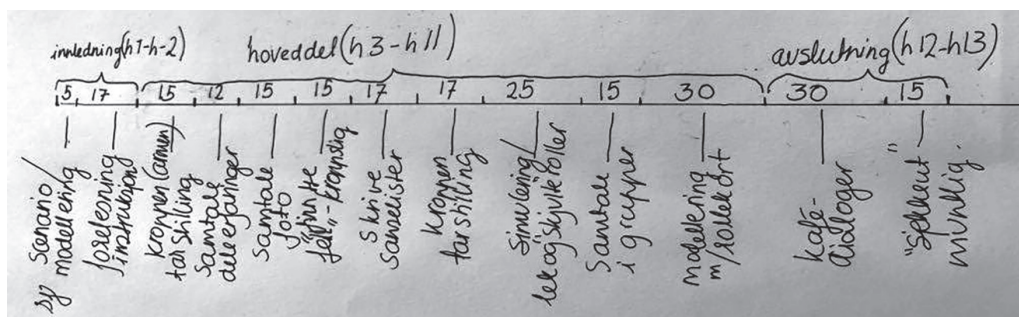 innledning(h1-h-2)
hoveddel(h3-h11)
avslutning(h12-h13)
5 17 15 12 15 15 17 17 25 15 30 30 15
senario/
modellering
sp
forelesning/
instruksjon
kroppen (armen)
tar stilling
samtale
dele erfaringer
samtale
foto
felt"-kroppslig
skrive
sanselister
kroppen
tar stilling
Simulering/
lek og skjulte roller
Samtale
i grupper
modellering
m/rollekort
kafé-
dialoger
"Sjekk ut"
muntlig.